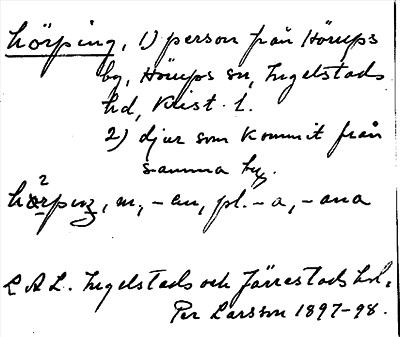 hörping, 1) person från Hörups
by, Hörups sn, Ingelstads
hd, Krist. l.
2) djur som kommit från
samma by.
hö²rpiŋ, m, -en, pl. -a, -ana
L A L. Ingelstads och Järrestads hd.
Per Larsson 1897-98.